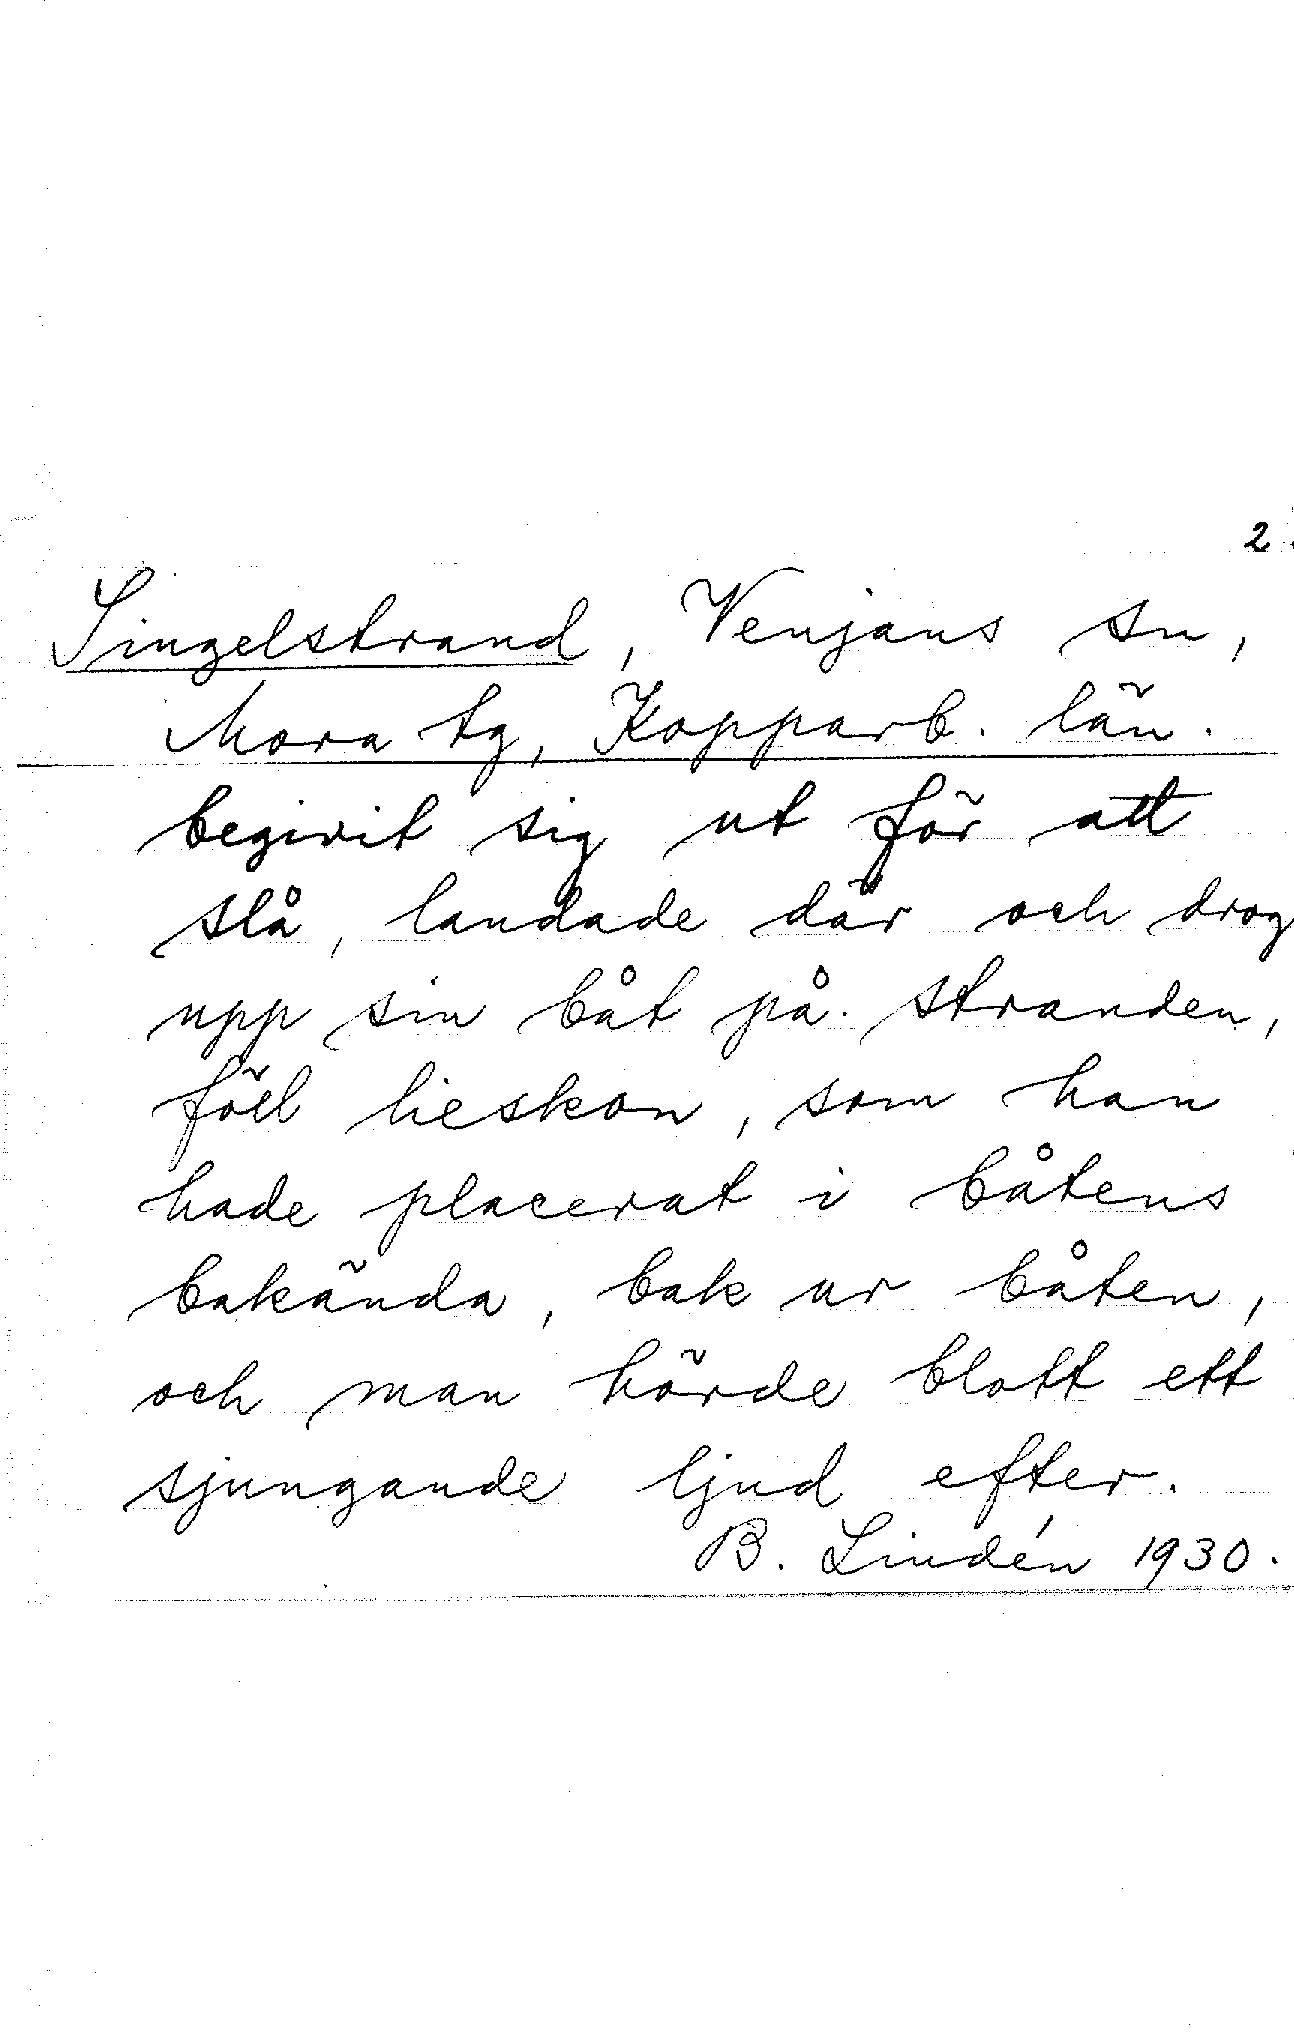 2.
Singelstrand, Venjans sn,
Mora tg, Kopparb. län.
begivit sig ut för att
slå, landade där och drog
upp sin båt på stranden,
föll lieskon, som han
hade placerat i båtens
bakända, bak ur båten,
och man hörde blott ett
sjungande ljud efter.
B. Lindén 1930.